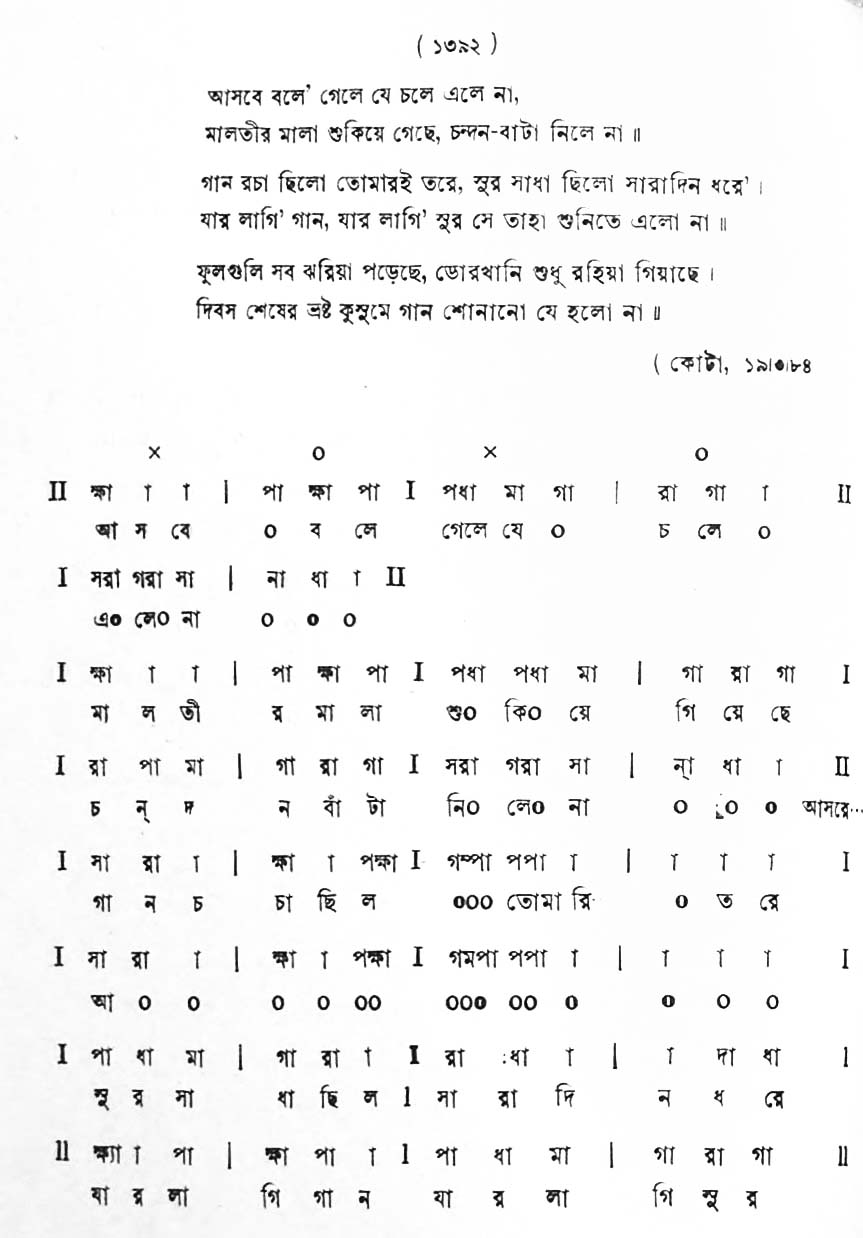 ( ১৩৯২ )
আসবে বলে' গেলে যে চলে এলে না,
মালতীর মালা শুকিয়ে গেছে, চন্দন-বাটা নিলে না ॥
গান রচা ছিলো তোমারই তরে, সুর সাধা ছিলো সারাদিন ধরে' ।
যার লাগি' গান, যার লাগি' সুর সে তাহা শুনিতে এলো না ॥
ফুলগুলি সব ঝরিয়া পড়েছে, ডোরখানি শুধু রহিয়া গিয়াছে ।
দিবস শেষের ভ্রষ্ট কুসুমে গান শোনানো যে হলো না ॥
( কোটা, ১৯।৩।৮৪
× ০ × ০
II ক্ষা া া | পা ক্ষা পা I পধা মা গা | রা গা া II
আ স বে ০ ব লে গেলে যে ০ চ লে ০
I সরা গরা সা | না ধা া II
এ০ লে০ না ০ ০ ০
I ক্ষা া া | পা ক্ষা পা I পধা পধা মা | গা রা গা I
মা ল তী র মা লা শু০ কি০ য়ে গি য়ে ছে
I রা পা মা | গা রা গা I সরা গরা সা | ন্া ধা া II
চ ন্ দ ন বাঁ টা নি০ লে০ না ০ ০ ০ আসবে···
I সা রা া | ক্ষা া পক্ষা I গম্পা পপা া | া া া I
গা ন চ চা ছি ল ০০০ তোমা রি ০ ত রে
I সা রা া | ক্ষা া পক্ষা I গমপা পপা া | া া া I
আ ০ ০ ০ ০ ০০ ০০০ ০০ ০ ০ ০ ০
I পা ধা মা | গা রা া I রা ধা া | া দা ধা I
সু র সা ধা ছি ল I সা রা দি ন ধ রে
II ক্ষ্যা া পা | ক্ষা পা া I পা ধা মা | গা রা গা II
যা র লা গি গা ন যা র লা গি সু র